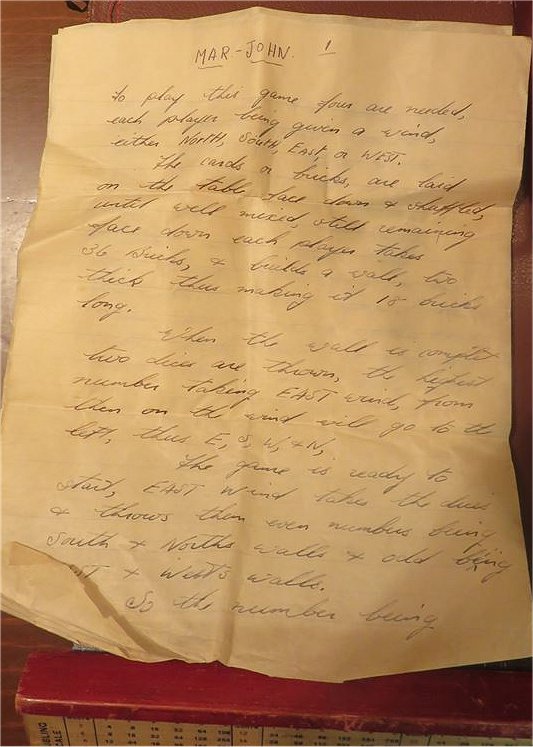 MAR-JOHN. 1
To play this game four are needed,
each player being given a wind,
either NORTH, SOUTH, EAST, or WEST.
The cards or bricks, are laid
on the table, face down & shuffled,
until well mixed, still remaining
face down each player takes
36 bricks, & builds a wall, two
thick thus making it 18 bricks
long.
When the wall is complet
two dices are thrown, the highest
number taking EAST wind, from
then on the wind will go to the
left, thus E, S, W, & N,
The game is ready to
start, EAST Wind takes the dices
& throws them even numbers being
South & Norths walls & odd being
ST & West's walls.
So the number being
BLING
CALE